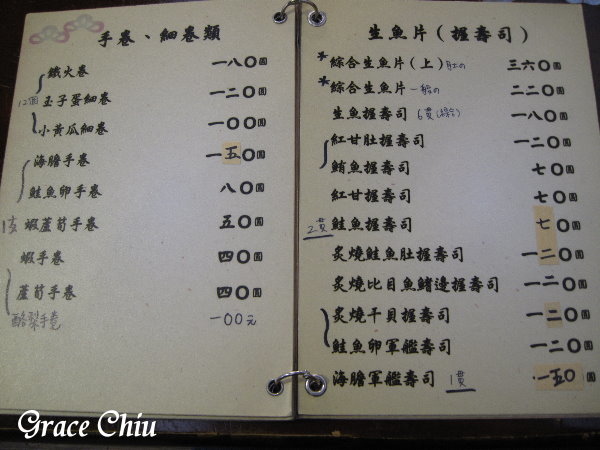 手卷、細卷類
鐵火卷 一八〇圓
12個 玉子蛋細卷 一二〇圓
小黃瓜細卷 一〇〇圓
海膽手卷 一五〇圓
鮭魚卵手卷 八〇圓
1支 蝦蘆筍手卷 五〇圓
蝦手卷 四〇圓
蘆筍手卷 四〇圓
酪梨手卷 一00元
生魚片(握壽司)
*綜合生魚片(上)肚の 三六〇圓
*綜合生魚片 一般の 二二〇圓
生魚握壽司 6貫(綜合) 一八〇圓
紅甘肚握壽司 一二〇圓
鮪魚握壽司 七〇圓
紅甘握壽司 七〇圓
2貫 鮭魚握壽司 七〇圓
炙燒鮭魚肚握壽司 一二〇圓
炙燒比目魚鰭邊握壽司 一二〇圓
炙燒干貝握壽司 一二〇圓
鮭魚卵軍艦壽司 一二〇圓
海膽軍艦壽司 1貫 一五0圓
Grace Chiu